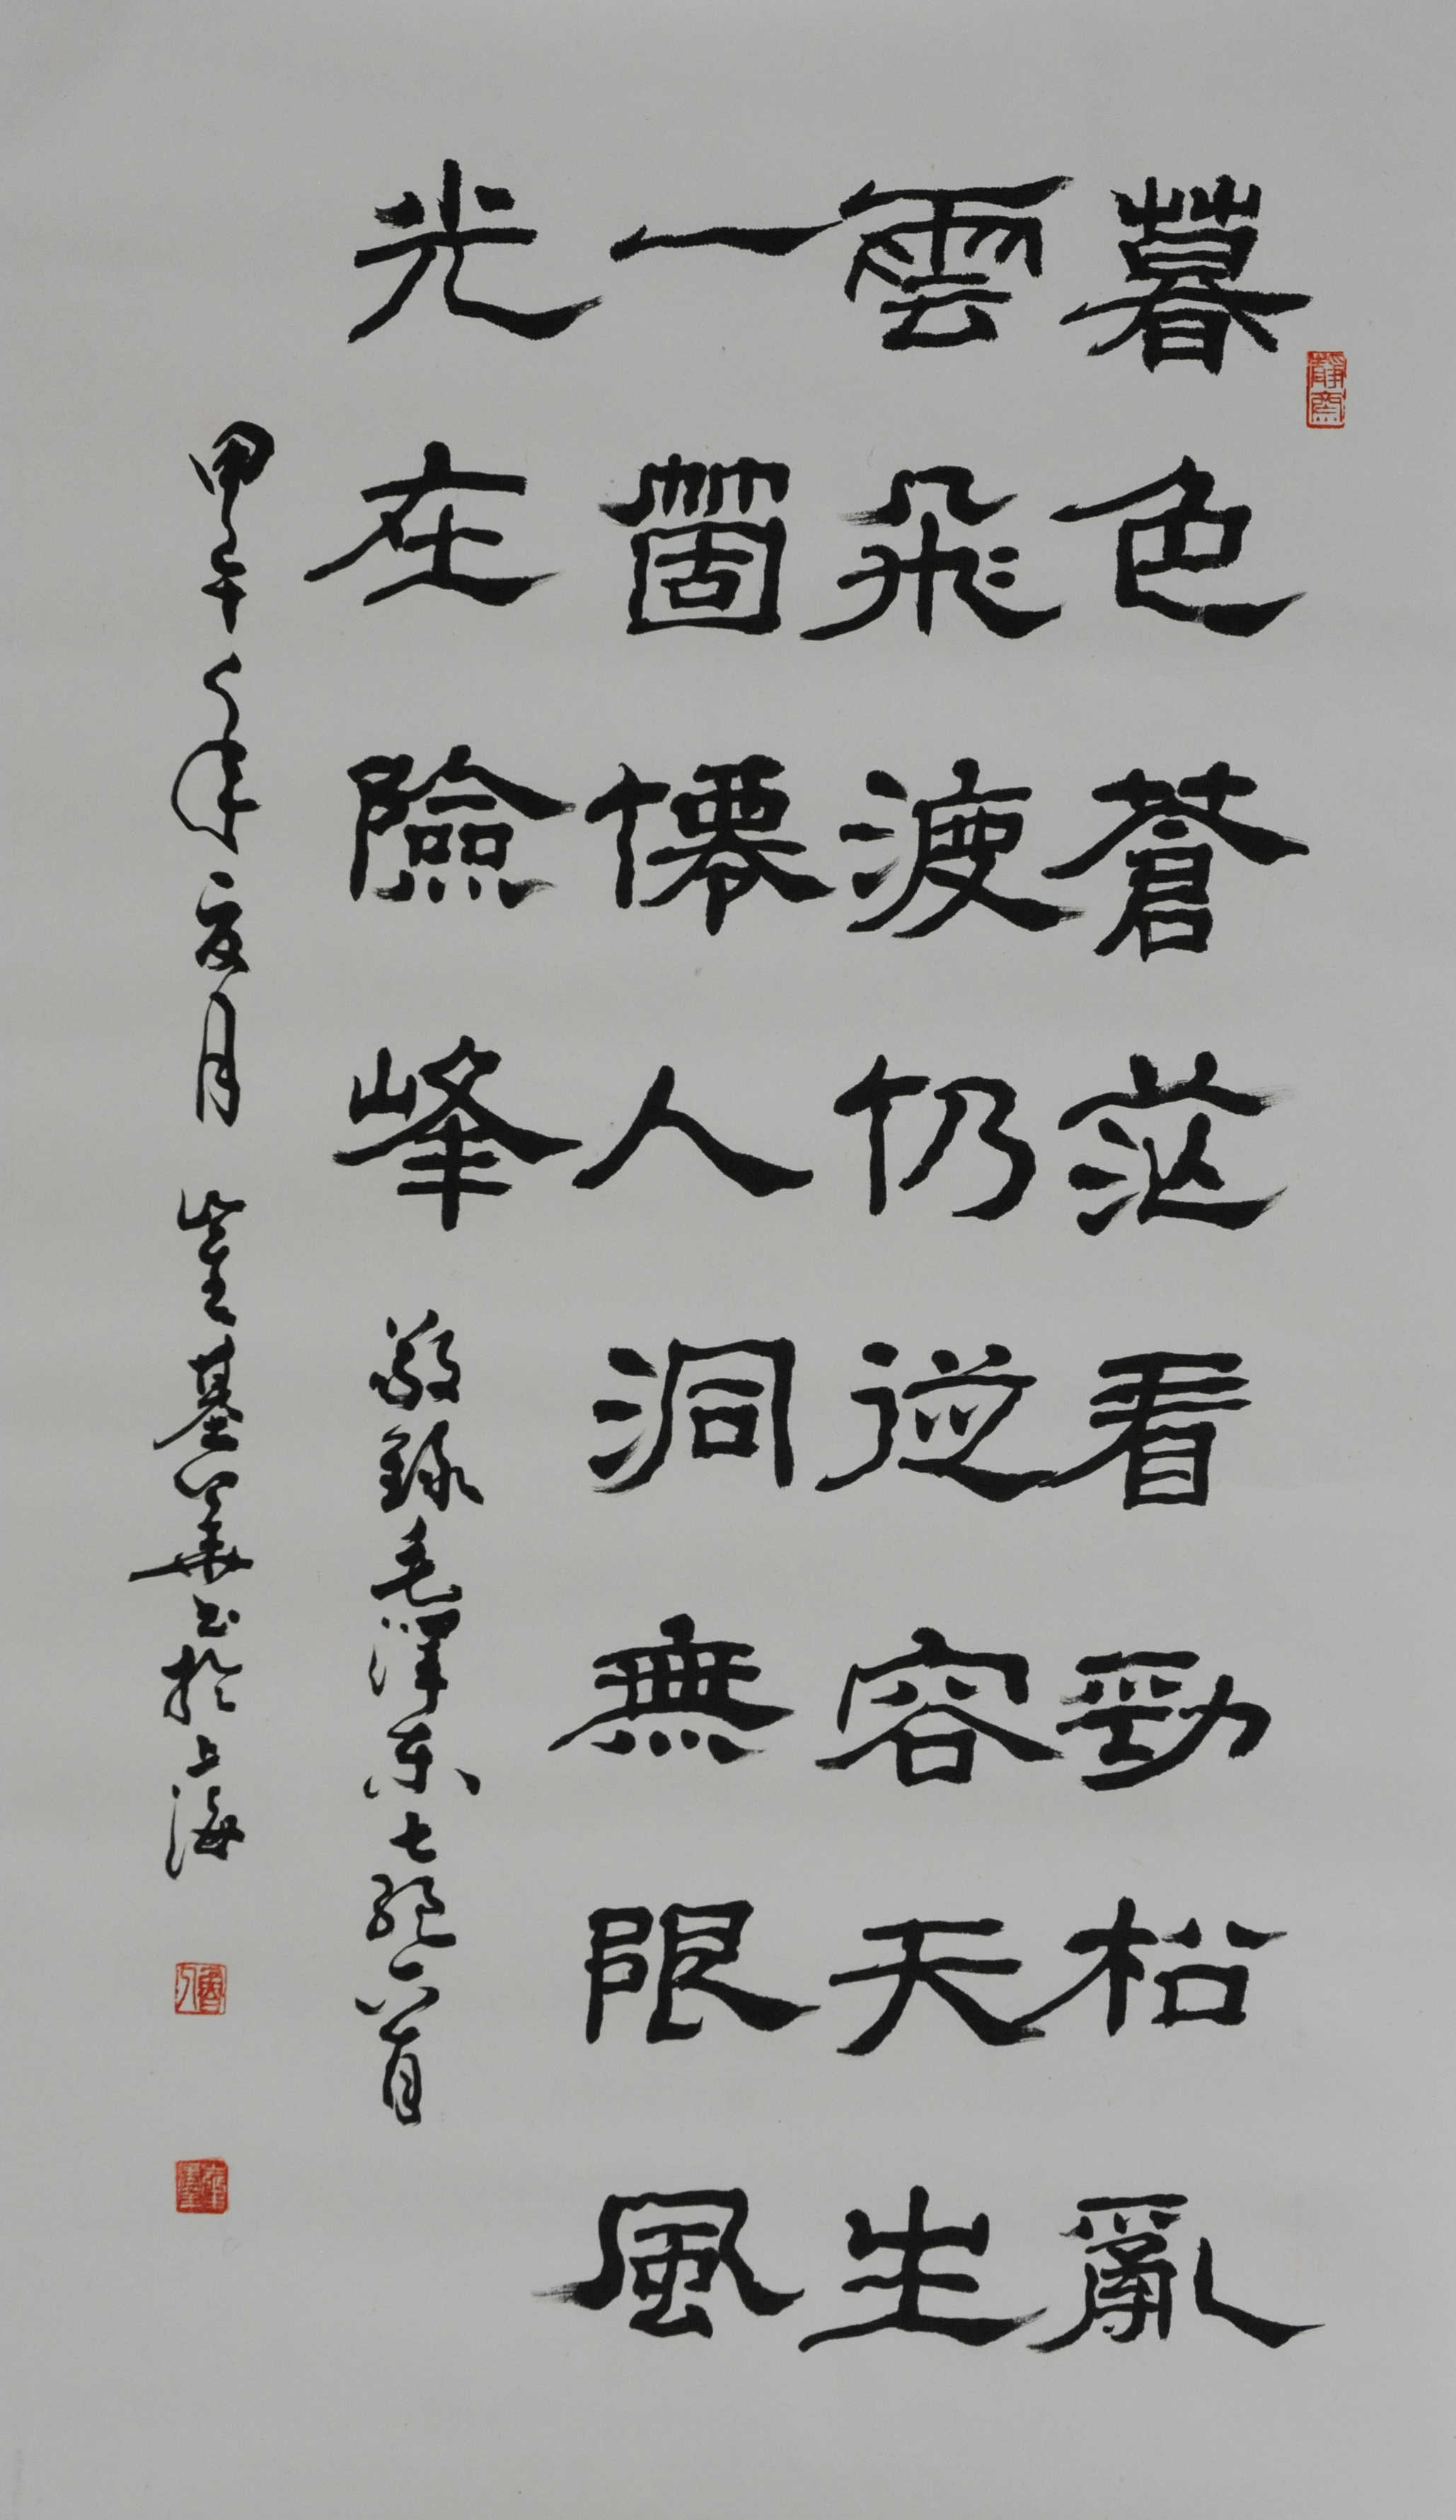 暮色蒼茫看勁松亂
雲飛渡仍從容天生
一箇僊人洞無限風
光在險峰
敬錄毛澤东七絕一首
甲午年夏月
書於上海